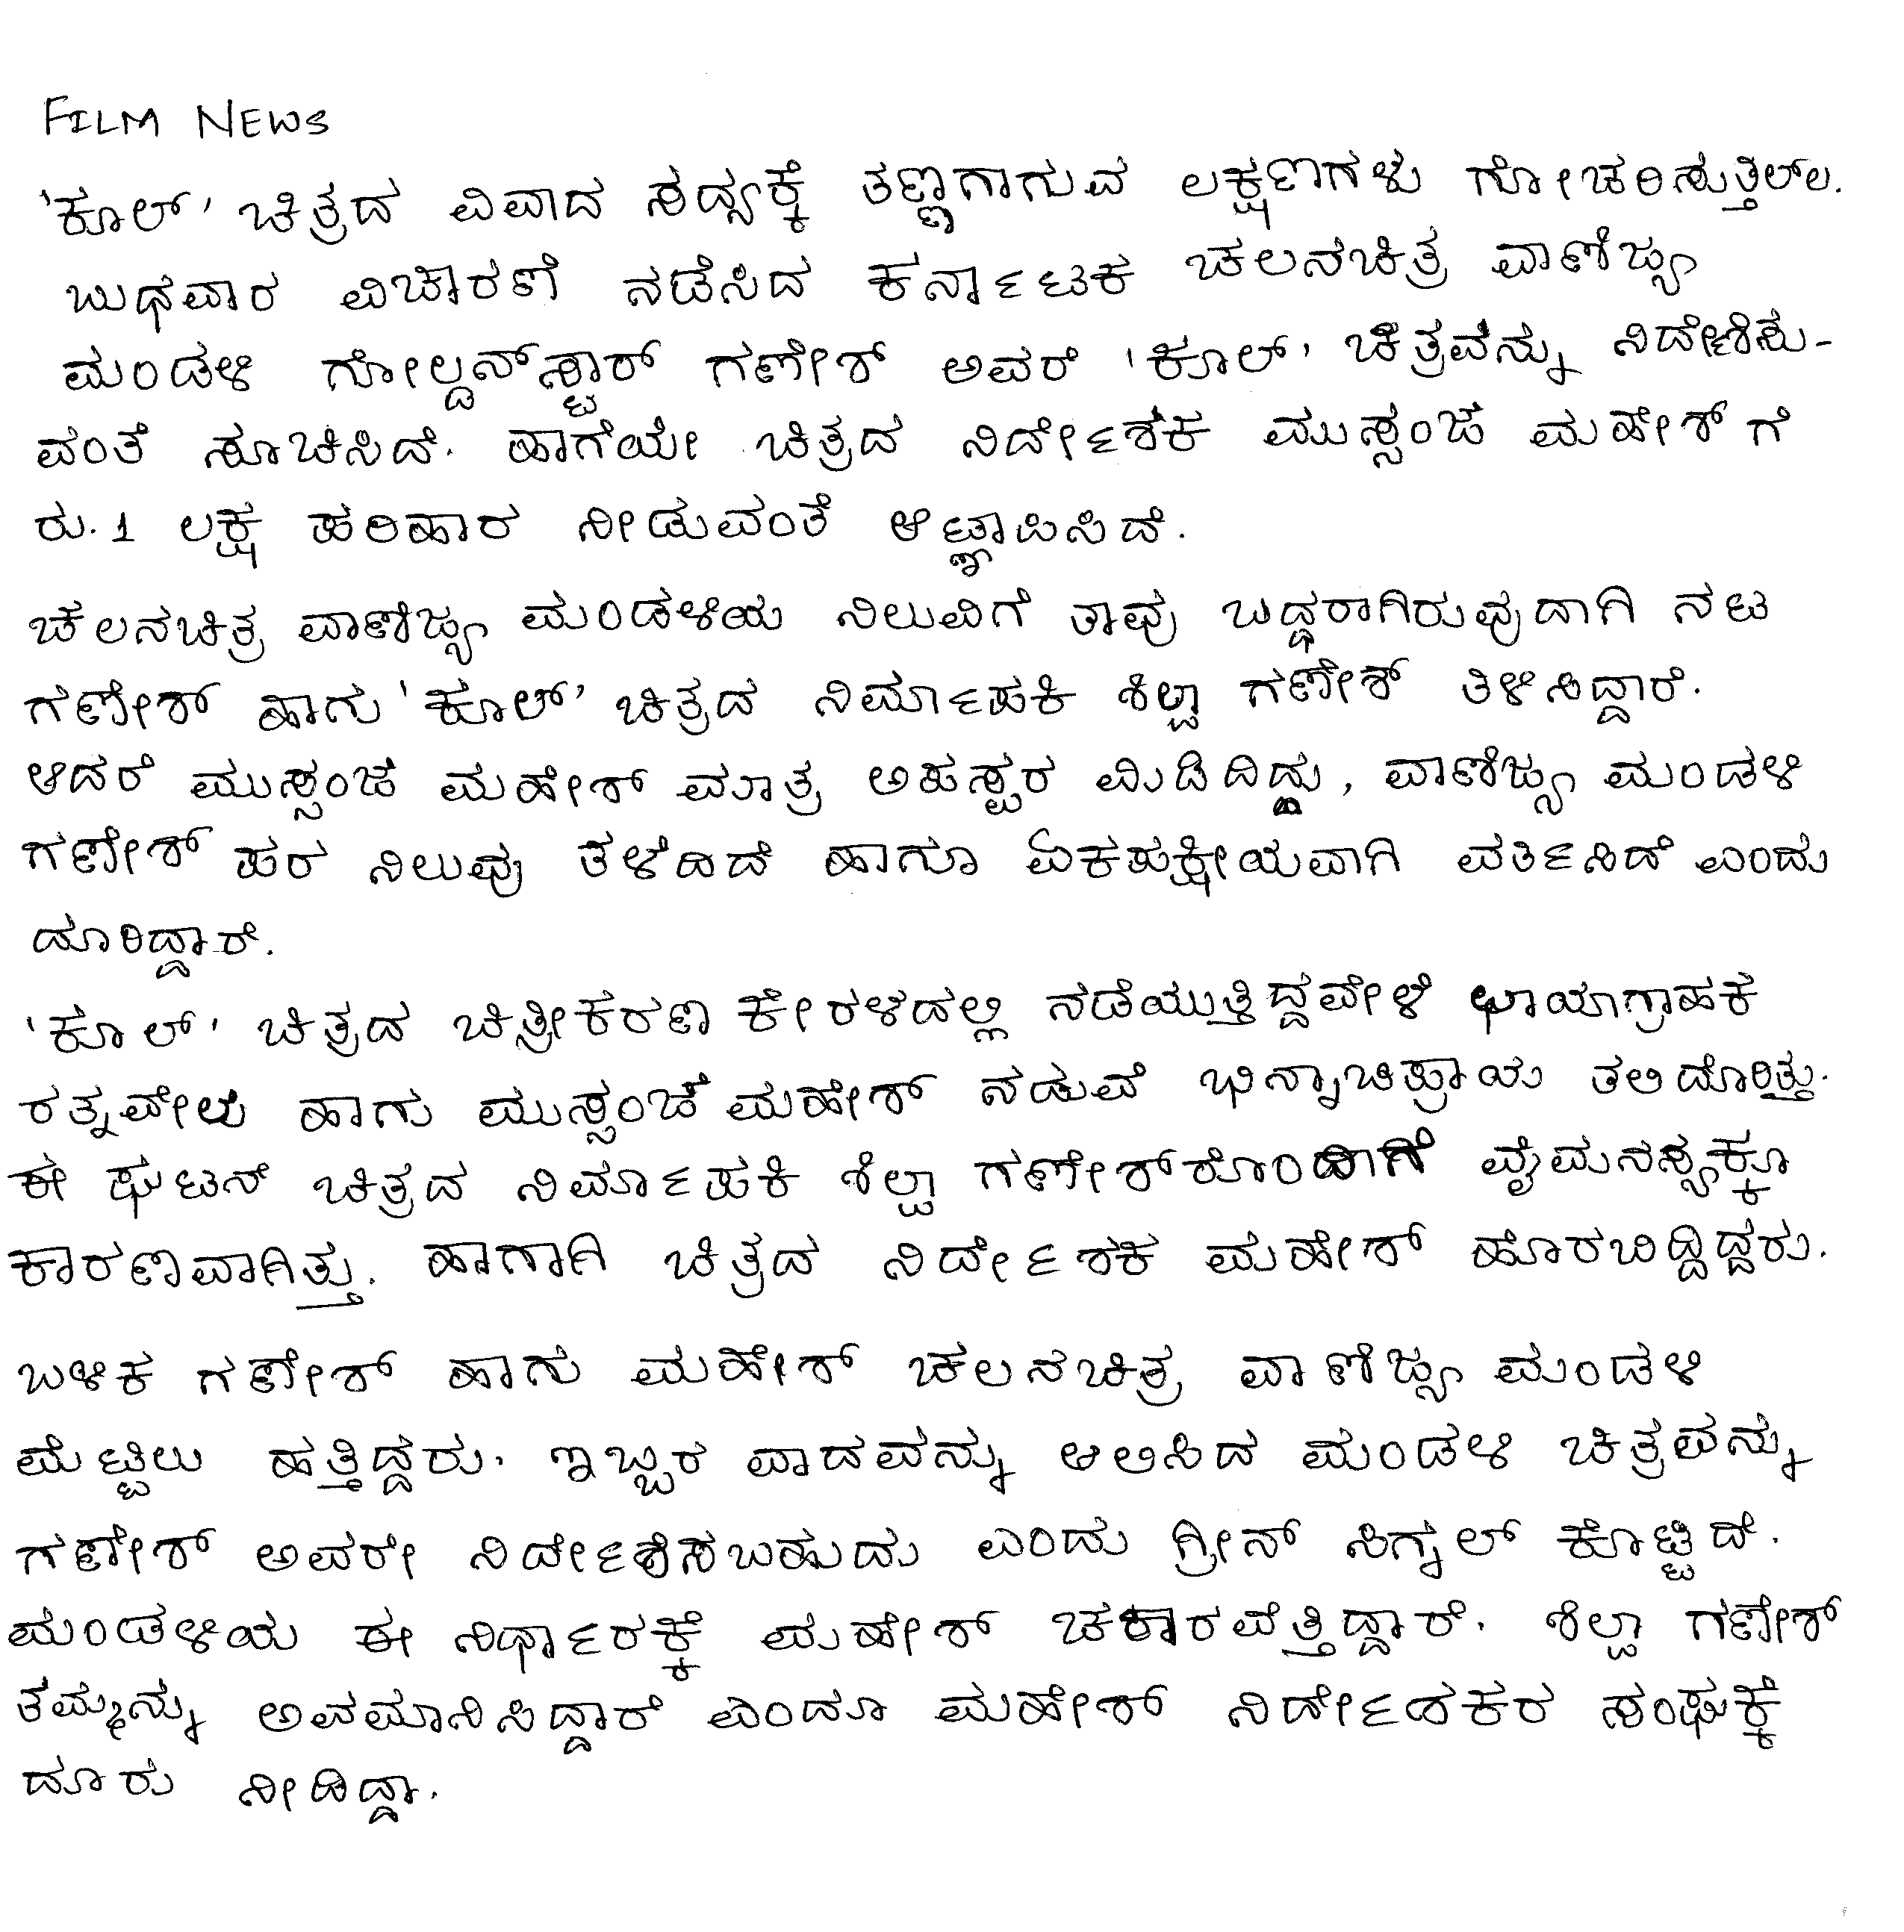 FILM NEWS
'ಕೂಲ್' ಚಿತ್ರದ ವಿವಾದ ಸದ್ಯಕ್ಕೆ ತಣ್ಣಗಾಗುವ ಲಕ್ಷಣಗಳು ಗೋಚರಿಸುತ್ತಿಲ್ಲ.
ಬುಧವಾರ ವಿಚಾರಣೆ ನಡೆಸಿದ ಕರ್ನಾಟಕ ಚಲನಚಿತ್ರ ವಾಣಿಜ್ಯ
ಮಂಡಳಿ ಗೋಲ್ಡನ್‌ಸ್ಟಾರ್ ಗಣೇಶ್ ಅವರೆ 'ಕೂಲ್' ಚಿತ್ರವನ್ನು ನಿರ್ದೇಶಿಸು-
ವಂತೆ ಸೂಚಿಸಿದೆ. ಹಾಗೆಯೇ ಚಿತ್ರದ ನಿರ್ದೇಶಕ ಮುಸ್ಸಂಜೆ ಮಹೇಶ್ ಗೆ
ರು. 1 ಲಕ್ಷ ಪರಿಹಾರ ನೀಡುವಂತೆ ಆಜ್ಞಾಪಿಸಿದೆ.
ಚಲನಚಿತ್ರ ವಾಣಿಜ್ಯ ಮಂಡಳಿಯ ನಿಲುವಿಗೆ ತಾವು ಬದ್ಧರಾಗಿರುವುದಾಗಿ ನಟ
ಗಣೇಶ್ ಹಾಗು 'ಕೂಲ್' ಚಿತ್ರದ ನಿರ್ಮಾಪಕಿ ಶಿಲ್ಪಾ ಗಣೇಶ್ ತಿಳಿಸಿದ್ದಾರೆ.
ಆದರೆ ಮುಸ್ಸಂಜೆ ಮಹೇಶ್ ಮಾತ್ರ ಅಪಸ್ವರ ಮಿಡಿದಿದ್ದು, ವಾಣಿಜ್ಯ ಮಂಡಳಿ
ಗಣೇಶ್ ಪರ ನಿಲುವು ತಳೆದಿದೆ ಹಾಗೂ ಏಕಪಕ್ಷೀಯವಾಗಿ ವರ್ತಿಸಿದೆ ಎಂದು
ದೂರಿದ್ದಾರೆ.
'ಕೂಲ್' ಚಿತ್ರದ ಚಿತ್ರೀಕರಣ ಕೇರಳದಲ್ಲಿ ನಡೆಯುತ್ತಿದ್ದವೇಳೆ ಛಾಯಾಗ್ರಾಹಕ
ರತ್ನವೇಲು ಹಾಗು ಮುಸ್ಸಂಜೆ ಮಹೇಶ್ ನಡುವೆ ಭಿನ್ನಾಭಿಪ್ರಾಯ ತಲೆದೋರಿತ್ತು.
ಈ ಘಟನೆ ಚಿತ್ರದ ನಿರ್ಮಾಪಕಿ ಶಿಲ್ಪಾ ಗಣೇಶ್‌ರೊಂದಾಗೆ ವೈಮನಸ್ಸಕ್ಕೂ
ಕಾರಣವಾಗಿತ್ತು. ಹಾಗಾಗಿ ಚಿತ್ರದ ನಿರ್ದೇಶಕ ಮಹೇಶ್ ಹೊರಬಿದ್ದಿದ್ದರು.
ಬಳಿಕ ಗಣೇಶ್ ಹಾಗು ಮಹೇಶ್ ಚಲನಚಿತ್ರ ವಾಣಿಜ್ಯ ಮಂಡಳಿ
ಮೆಟ್ಟಿಲು ಹತ್ತಿದ್ದರು. ಇಬ್ಬರ ವಾದವನ್ನು ಆಲಿಸಿದ ಮಂಡಳಿ ಚಿತ್ರವನ್ನು
ಗಣೇಶ್ ಅವರೇ ನಿರ್ದೇಶಿಸಬಹುದು ಎಂದು ಗ್ರೀನ್ ಸಿಗ್ನಲ್ ಕೊಟ್ಟಿದೆ.
ಮಂಡಳಿಯ ಈ ನಿರ್ಧಾರಕ್ಕೆ ಮಹೇಶ್ ಚಕಾರವೆತ್ತಿದ್ದಾರೆ. ಶಿಲ್ಪಾ ಗಣೇಶ್
ತಮ್ಮನ್ನು ಅವಮಾನಿಸಿದ್ದಾರೆ ಎಂದೂ ಮಹೇಶ್ ನಿರ್ದೇಶಕರ ಸಂಘಕ್ಕೆ
ದೂರು ನೀಡಿದ್ದಾ.